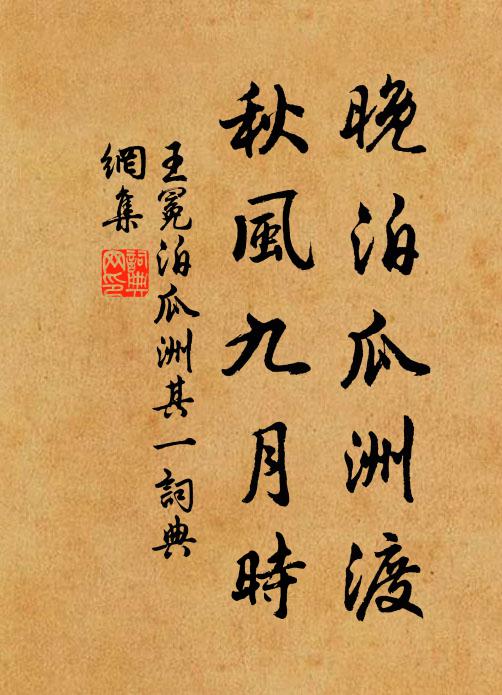 晚泊瓜洲渡
秋風九月時
王冕泊瓜洲其一詞典
網集
詞典网印